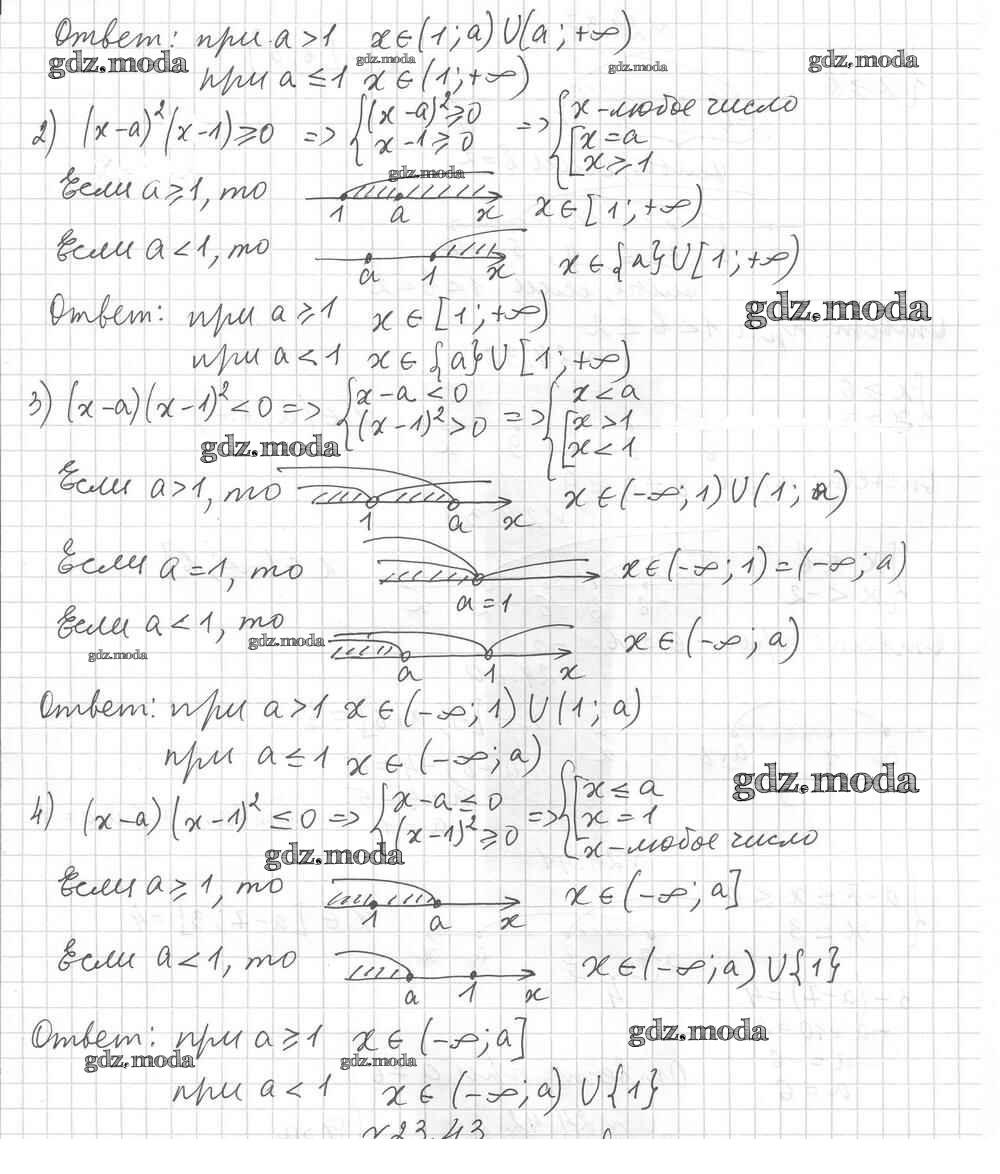 Ответ: при a > 1 x ∈ (1; a) ∪ (a; +∞)
gdz.moda gdz.moda gdz.moda gdz.moda
при a ≤ 1 x ∈ (1; +∞)
2) (x-a)²(x-1) ≥ 0 => { (x-a)² ≥ 0 => { x - любое число
x-1 ≥ 0 [ x = a
x ≥ 1
gdz.moda
Если a ≥ 1, то 1 a x x ∈ [1; +∞)
Если a < 1, то a 1 x x ∈ {a} ∪ [1; +∞)
Ответ: при a ≥ 1 x ∈ [1; +∞)
gdz.moda
при a < 1 x ∈ {a} ∪ [1; +∞)
3) (x-a)(x-1)² < 0 => { x-a < 0 => { x < a
(x-1)² > 0 [ x > 1
x < 1
gdz.moda
Если a > 1, то 1 a x x ∈ (-∞; 1) ∪ (1; a)
Если a = 1, то a = 1 x ∈ (-∞; 1) = (-∞; a)
Если a < 1, то a 1 x x ∈ (-∞; a)
gdz.moda gdz.moda
Ответ: при a > 1 x ∈ (-∞; 1) ∪ (1; a)
при a ≤ 1 x ∈ (-∞; a)
gdz.moda
4) (x-a)(x-1)² ≤ 0 => { x-a ≤ 0 => { [ x ≤ a
(x-1)² ≥ 0 x = 1
x - любое число
gdz.moda
Если a ≥ 1, то 1 a x x ∈ (-∞; a]
Если a < 1, то a 1 x x ∈ (-∞; a) ∪ {1}
Ответ: при a ≥ 1 x ∈ (-∞; a]
gdz.moda gdz.moda gdz.moda
при a < 1 x ∈ (-∞; a) ∪ {1}